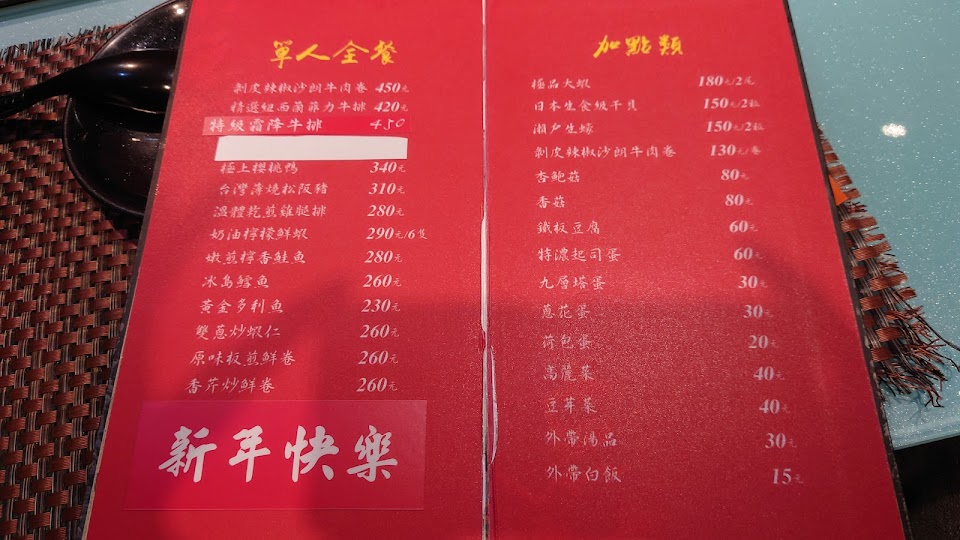 單人全餐
剝皮辣椒沙朗牛肉卷 450元
精選紐西蘭菲力牛排 420元
特級霜降牛排 450
極上櫻桃鴨 340元
台灣薄燒松阪豬 310元
溫體乾煎雞腿排 280元
奶油檸檬鮮蝦 290元/6隻
嫩煎檸香鮭魚 280元
冰島鱈魚 260元
黃金多利魚 230元
雙蔥炒蝦仁 260元
原味板煎鮮卷 260元
香芹炒鮮卷 260元
新年快樂
加點類
極品大蝦 180元/2尾
日本生食級干貝 150元/2粒
瀨戶生蠔 150元/2粒
剝皮辣椒沙朗牛肉卷 130元/卷
杏鮑菇 80元
香菇 80元
鐵板豆腐 60元
特濃起司蛋 60元
九層塔蛋 30元
蔥花蛋 30元
荷包蛋 20元
高麗菜 40元
豆芽菜 40元
外帶湯品 30元
外帶白飯 15元